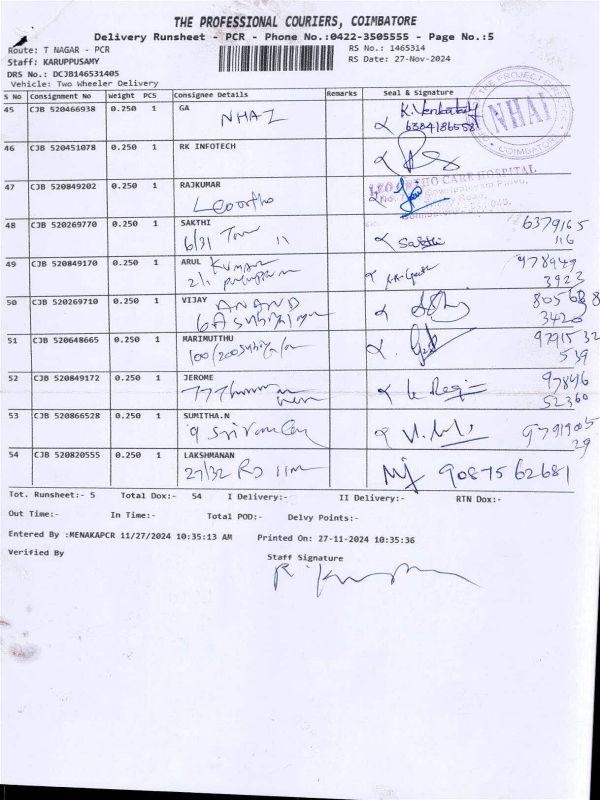 THE PROFESSIONAL COURIERS, COIMBATORE
Delivery Runsheet - PCR - Phone No.:0422-3505555 - Page No.:5
Route: T NAGAR - PCR
RS No.: 1465314
Staff: KARUPPUSAMY
RS Date: 27-Nov-2024
DRS No.: DCJB146531405
Vehicle: Two Wheeler Delivery
S No Consignment No Weight PCS Consignee Details Remarks Seal & Signature
45 CJB 520466938 0.250 1 GA
K.Venkatesh
6384186558
NHAI
COIMBATORE
46 CJB 520451078 0.250 1 RK INFOTECH
47 CJB 520849202 0.250 1 RAJKUMAR
LEO ORTHO CARE HOSPITAL
Leoortho
48 CJB 520269770 0.250 1 SAKTHI
6/31 Sakthi 6379165
116
49 CJB 520849170 0.250 1 ARUL KUMAR
2/1 978949
3923
50 CJB 520269710 0.250 1 VIJAY ANAND
6A
3420
51 CJB 520648665 0.250 1 MARIMUTTHU
100/200 9791532
539
52 CJB 520849172 0.250 1 JEROME
77 97846
52360
53 CJB 520866528 0.250 1 SUMITHA.N
9 9791905
29
54 CJB 520820555 0.250 1 LAKSHMANAN
27/32 90875 62681
Tot. Runsheet:- 5 Total Dox:- 54 I Delivery:- II Delivery:- RTN Dox:-
Out Time:- In Time:- Total POD:- Delvy Points:-
Entered By :MENAKAPCR 11/27/2024 10:35:13 AM Printed On: 27-11-2024 10:35:36
Verified By
Staff Signature